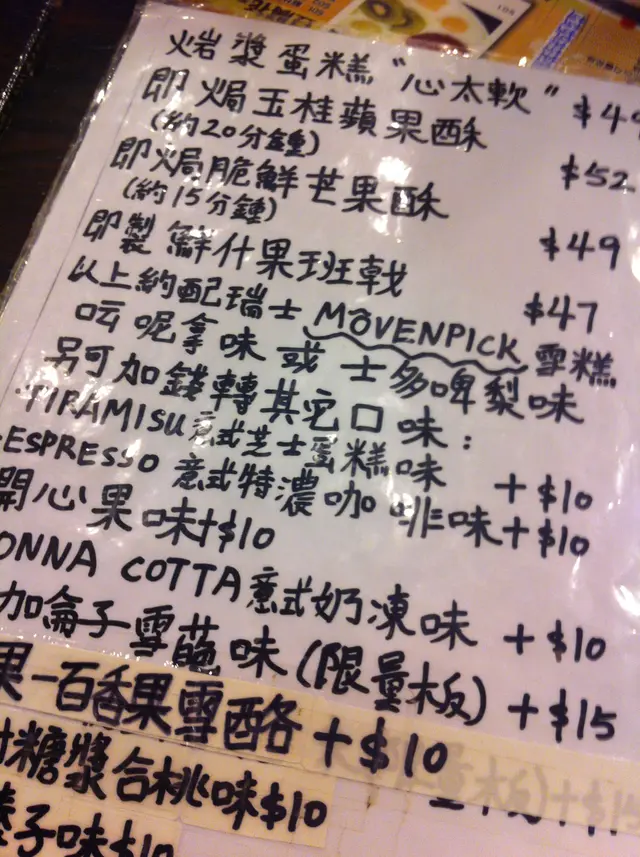 火岩漿蛋糕"心太軟" $49
即焗玉桂蘋果酥
(約20分鐘) $52
即焗脆鮮芒果酥
(約15分鐘) $49
即製鮮什果班戟 $47
以上約配瑞士MÖVENPICK雪糕
呍呢拿味或士多啤梨味
另可加錢轉其它口味：
TIRAMISU意式芝士蛋糕味 +$10
ESPRESSO意式特濃咖啡味+$10
開心果味+$10
ONNA COTTA意式奶凍味 +$10
加侖子雪葩味(限量板) +$15
果一百香果雪酪+$10
糖漿合桃味$10
子味$10